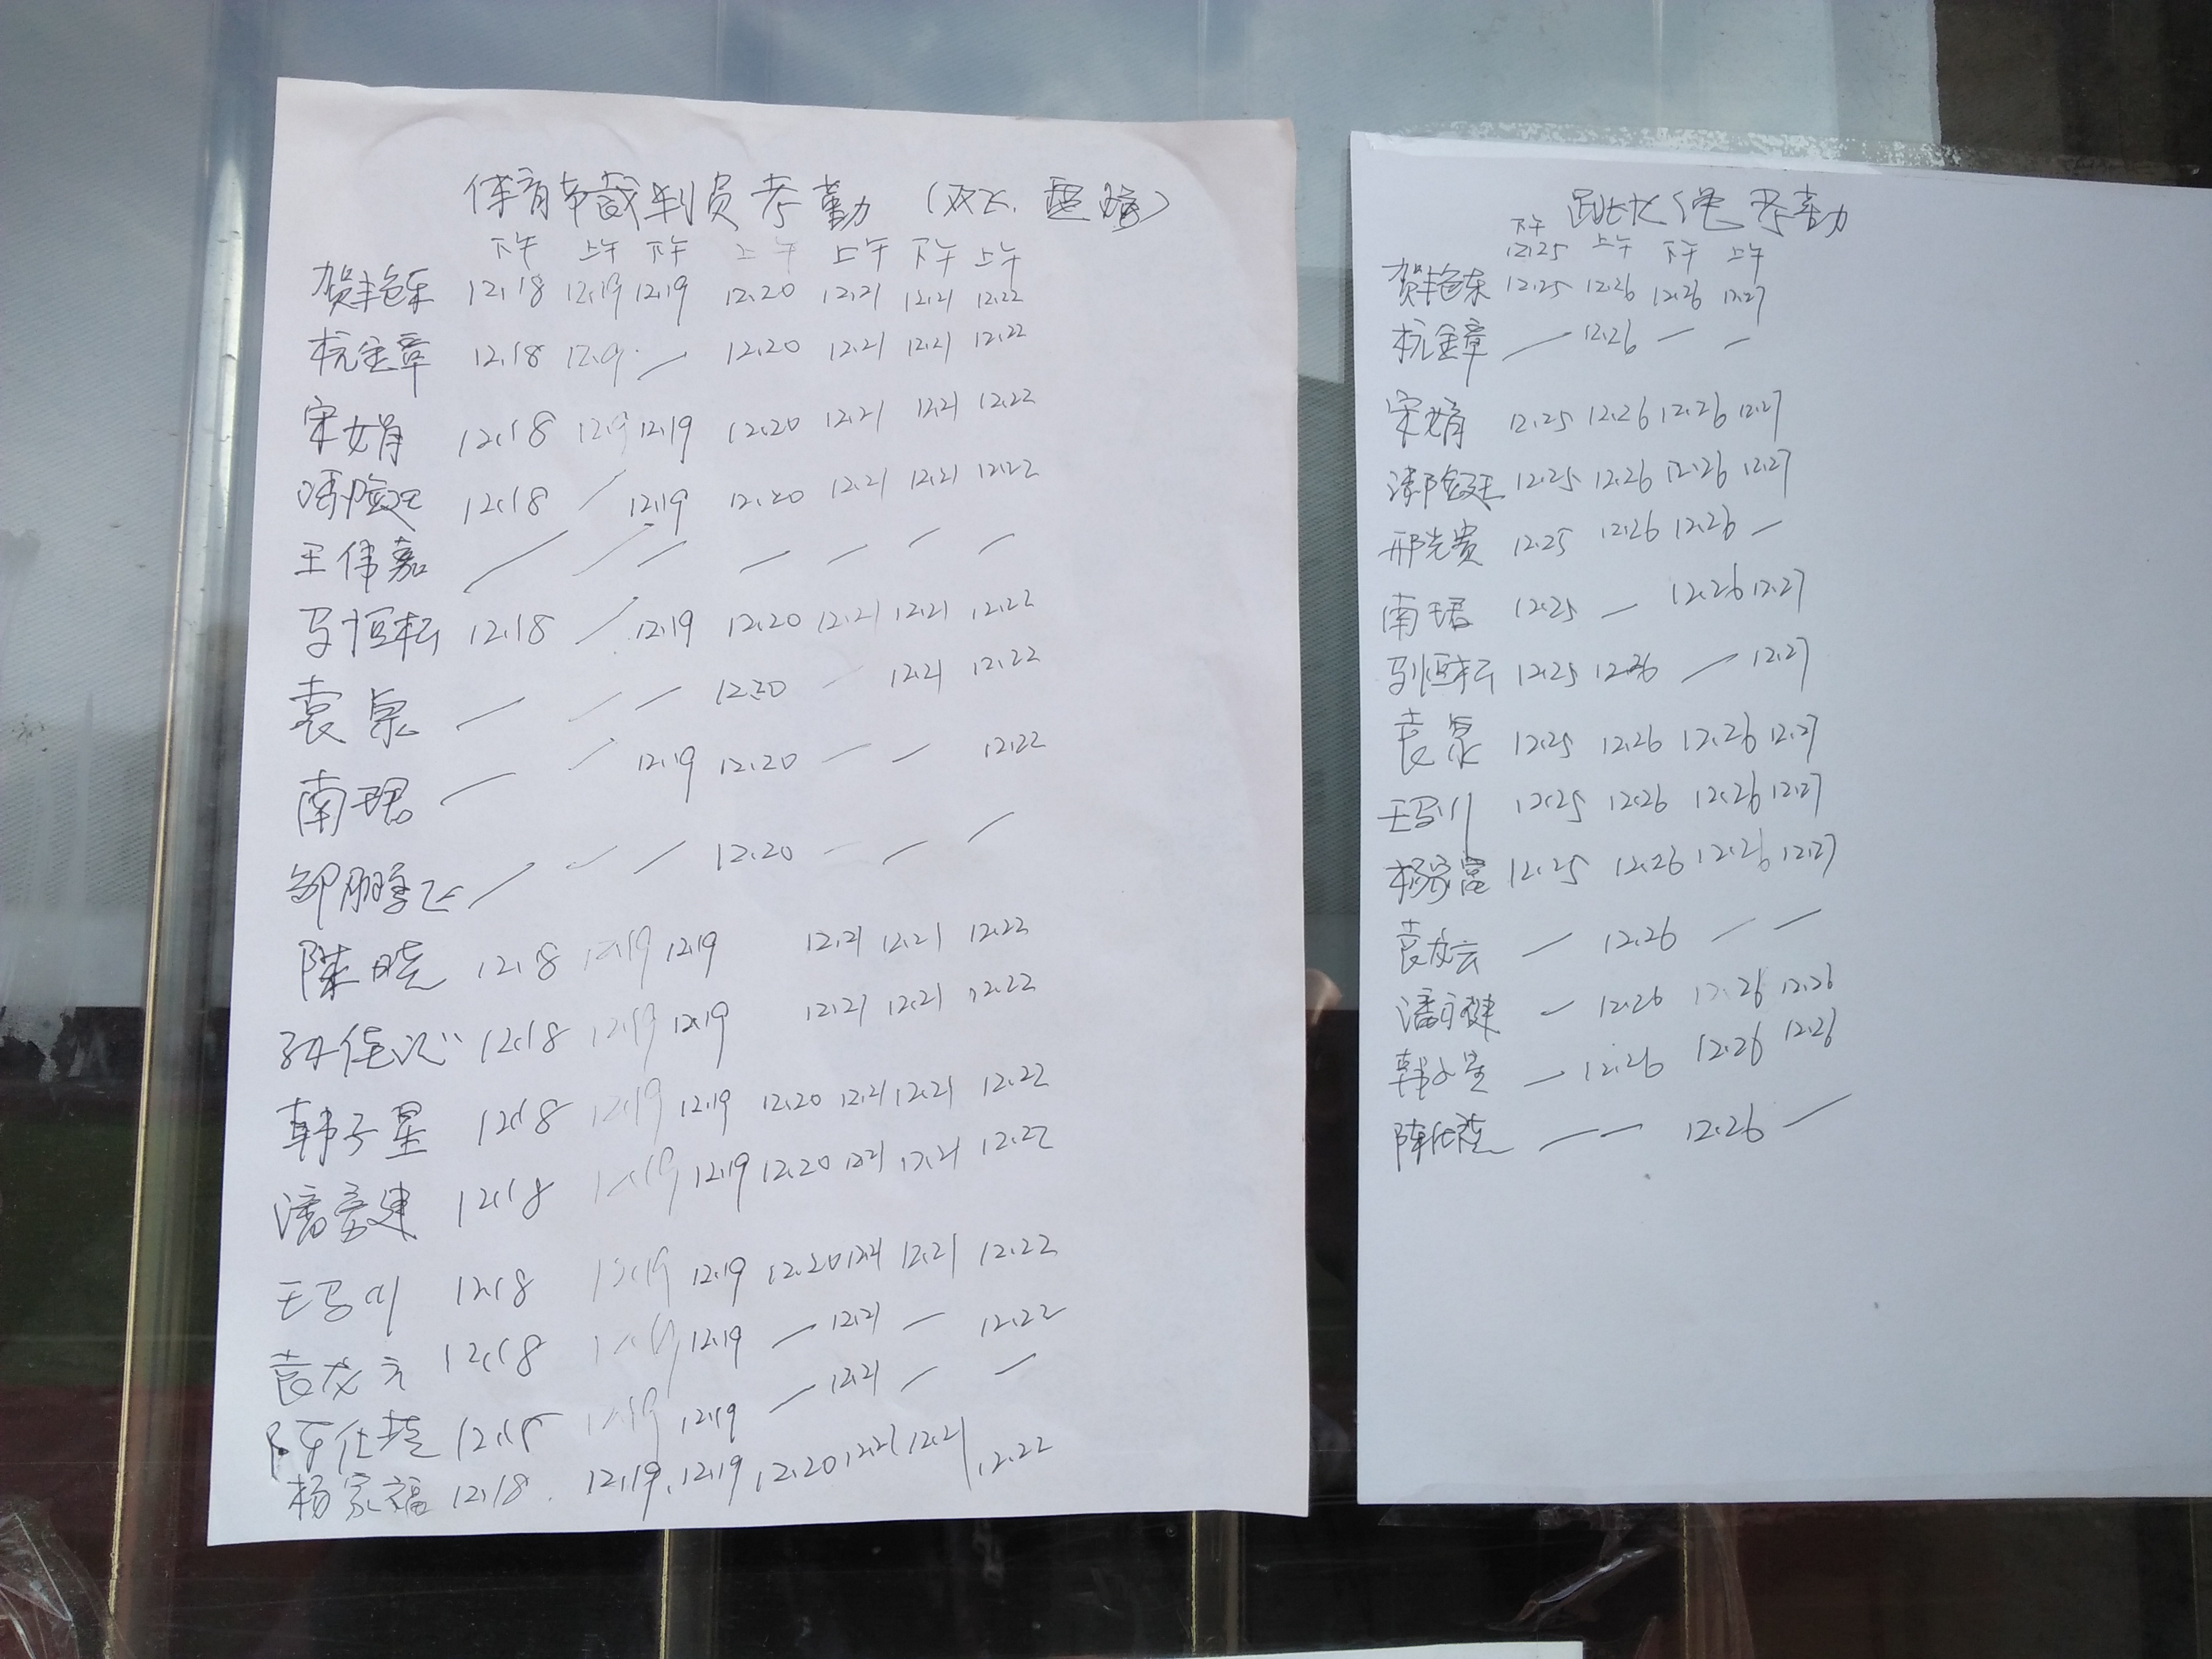 体育节裁判员考勤（双飞、
下午 上午 下午 上午 上午 下午 上午
贺艳东 12.18 12.19 12.19 12.20 12.21 12.21 12.22
杭金章 12.18 12.19 — 12.20 12.21 12.21 12.22
宋娟 12.18 12.19 12.19 12.20 12.21 12.21 12.22
12.18 — 12.19 12.20 12.21 12.21 12.22
王伟嘉 — — — — — — —
马恒耘 12.18 — 12.19 12.20 12.21 12.21 12.22
袁泉 — — — 12.20 — 12.21 12.22
南珺 — — 12.19 12.20 — — 12.22
邹鹏飞 — — — 12.20 — — —
陈晓 12.18 12.19 12.19 12.21 12.21 12.22
孙佳沁 12.18 12.19 12.19 12.21 12.21 12.22
韩子星 12.18 12.19 12.19 12.20 12.21 12.21 12.22
12.18 12.19 12.19 12.20 12.21 12.21 12.22
王马川 12.18 12.19 12.19 12.20 12.21 12.21 12.22
袁龙云 12.18 12.19 12.19 — 12.21 — 12.22
12.18 12.19 12.19 — 12.21 — —
杨家福 12.18 12.19 12.19 12.20 12.21 12.21 12.22
跳长绳考勤
下午 上午 下午 上午
12.25
贺艳东 12.25 12.26 12.26 12.27
杭金章 — 12.26 — —
宋娟 12.25 12.26 12.26 12.27
12.25 12.26 12.26 12.27
邢先贵 12.25 12.26 12.26 —
南珺 12.25 — 12.26 12.27
马恒耘 12.25 12.26 — 12.27
袁泉 12.25 12.26 12.26 12.27
王马川 12.25 12.26 12.26 12.27
杨家富 12.25 12.26 12.26 12.27
袁龙云 — 12.26 — —
— 12.26 12.26 12.26
韩子星 — 12.26 12.26 12.26
— — 12.26 —